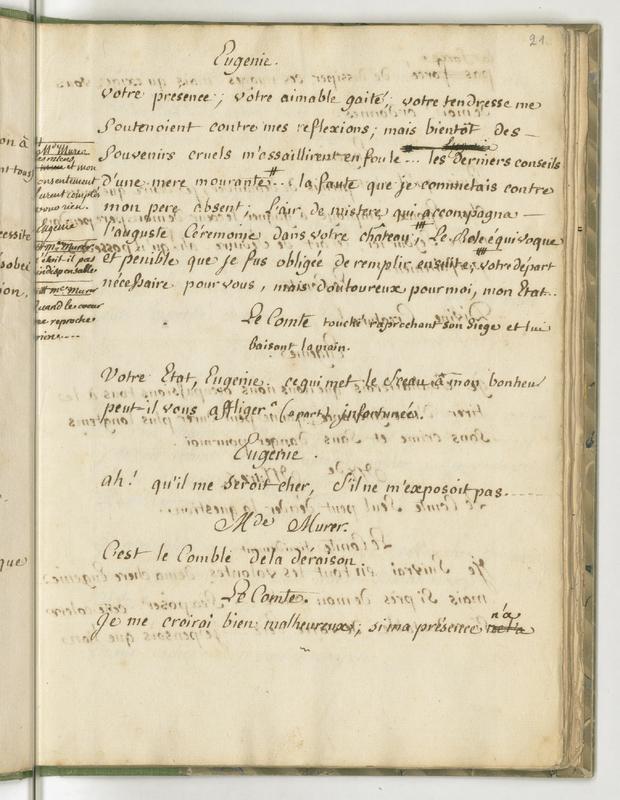 21.
Eugenie.
votre presence; votre aimable gaité; votre tendresse me
Soutenoient contre mes reflexions; mais bientôt des
Souvenirs cruels m'assaillirent en foule... les derniers conseils
d'une mere mourante... la faute que je commetais contre
mon pere absent; l'air de mistere qui accompagna
l'auguste Céremonie dans votre château; Le Role équivoque
et penible que je fus obligée de remplir ensuite; votre départ
nécessaire pour vous, mais douloureux pour moi, mon Etat..
Le Comte touché raprochant son siege et lui
baisant la main.
Votre Etat, Eugenie, ce qui met le Sceau à mon bonheur
peut-il vous affliger? (apart) infortunée.
Eugenie.
ah! qu'il me seroit cher, s'il ne m'exposoit pas....
Mde Murer.
C'est le Comble de la déraison.
Le Comte.
Je me croirai bien malheureux, si ma présence n'a
Mde Murer
et mon
consentement
pour rien.
Eugenie
Mde Murer.
étoit il pas
indispensable
Mde Murer
Quand le coeur
ne reproche
rien....